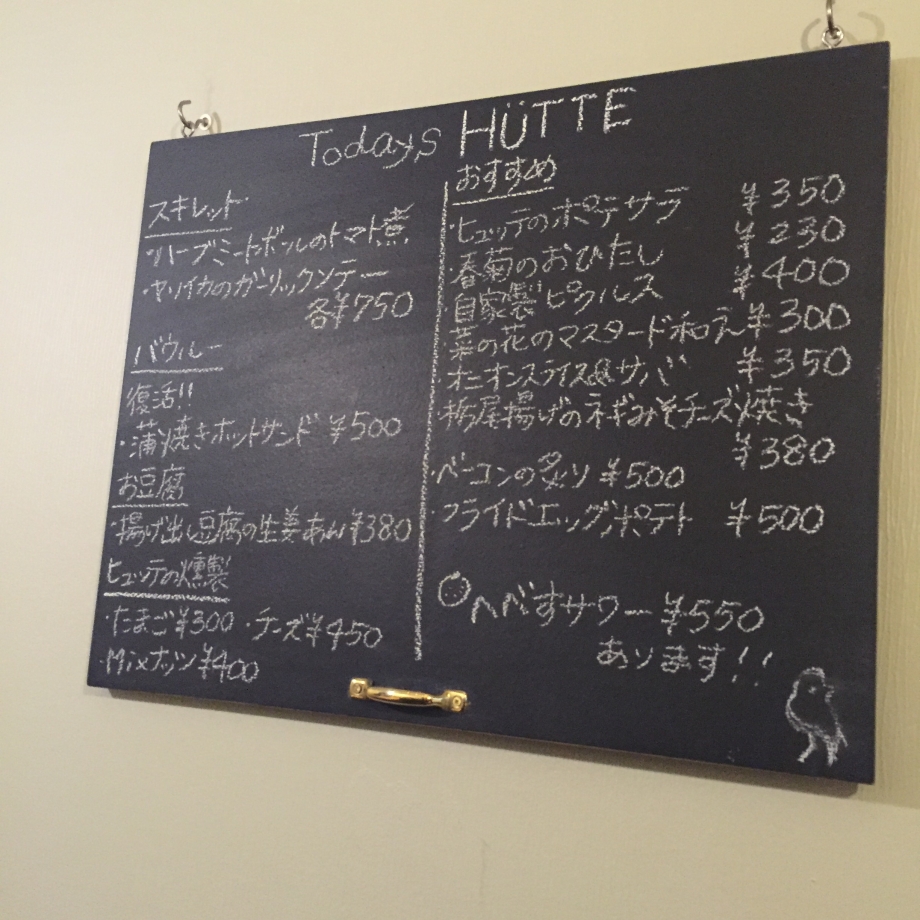 Todays HÜTTE
スキレット
・ハーブミートボールのトマト煮
・ヤリイカのガーリックソテー
各¥750
バウルー
復活!!
・蒲焼きホットサンド ¥500
お豆腐
・揚げ出し豆腐の生姜あん¥380
ヒュッテの燻製
・たまご¥300 ・チーズ¥450
・Mixナッツ¥400
おすすめ
・ヒュッテのポテサラ ¥350
・春菊のおひたし ¥230
・自家製ピクルス ¥400
・菜の花のマスタード和え¥300
・オニオンスライス&サバ ¥350
・栃尾揚げのネギみそチーズ焼き
¥380
・ベーコンの炙り ¥500
・フライドエッグポテト ¥500
へべすサワー ¥550
あります!!